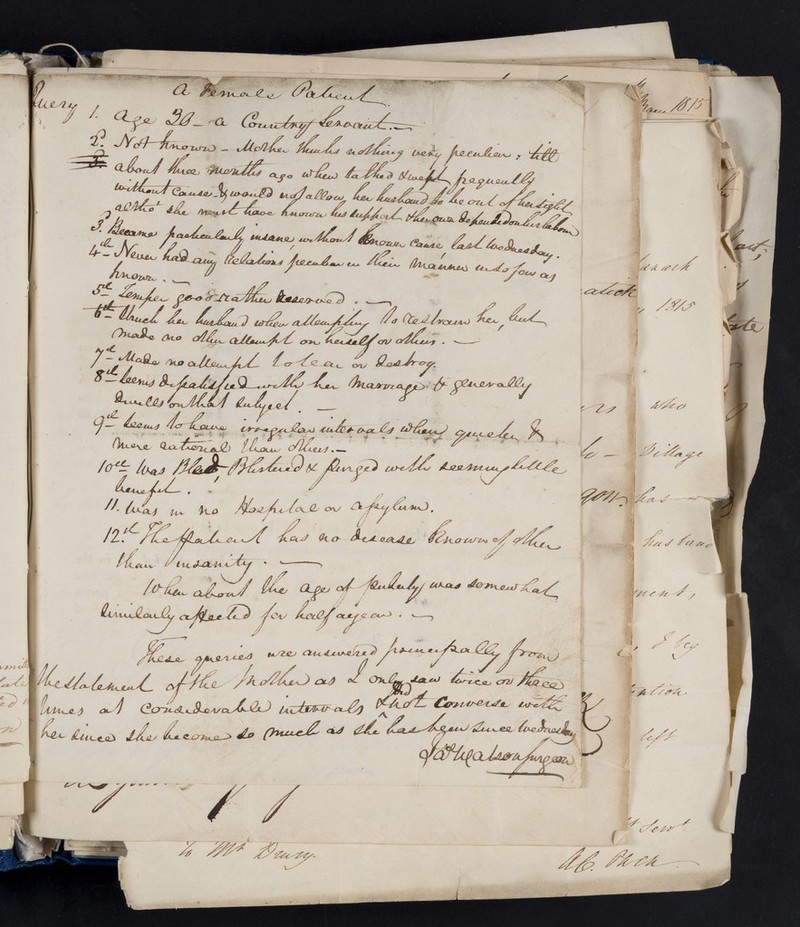 A Female Patient
Query 1. Age 30 - a Country Servant. -
2d. Not known - Mother thinks nothing very peculiar; till
about three months ago when talked & wept frequently
without cause & would not allow her husband to be out of her sight
altho' she must have known his support & her own depended on his labour
3d. Became particularly insane without known cause last Wednesday.
4th Never had any relations peculiar in their manner in so far as
known. -
5th Temper good rather reserved. -
6th Struck her husband when attempting to restrain her, but
made no other attempt on herself or others. -
7th Made no attempt to tear or destroy.
8th Seems disatisfied with her marriage & generally
dwells on that subject. -
9th Seems to have irregular intervals when quieter &
more rational than others. -
10th Was Bled, Blistered & purged with seeming little
benefit.
11. Was in no Hospital or asylum.
12th The Patient has no disease known of other
than insanity. -
When about the age of puberty was somewhat
similarly affected for half a year. -
These queries are answered principally from
the statement of the Mother as I only saw twice or three
times at considerable intervals & did not converse with
her since she become so much as she has been since Wednesday
Watson Surgeon
1815
1815
who
Village
has
husband
I beg
left
To Mr Drury